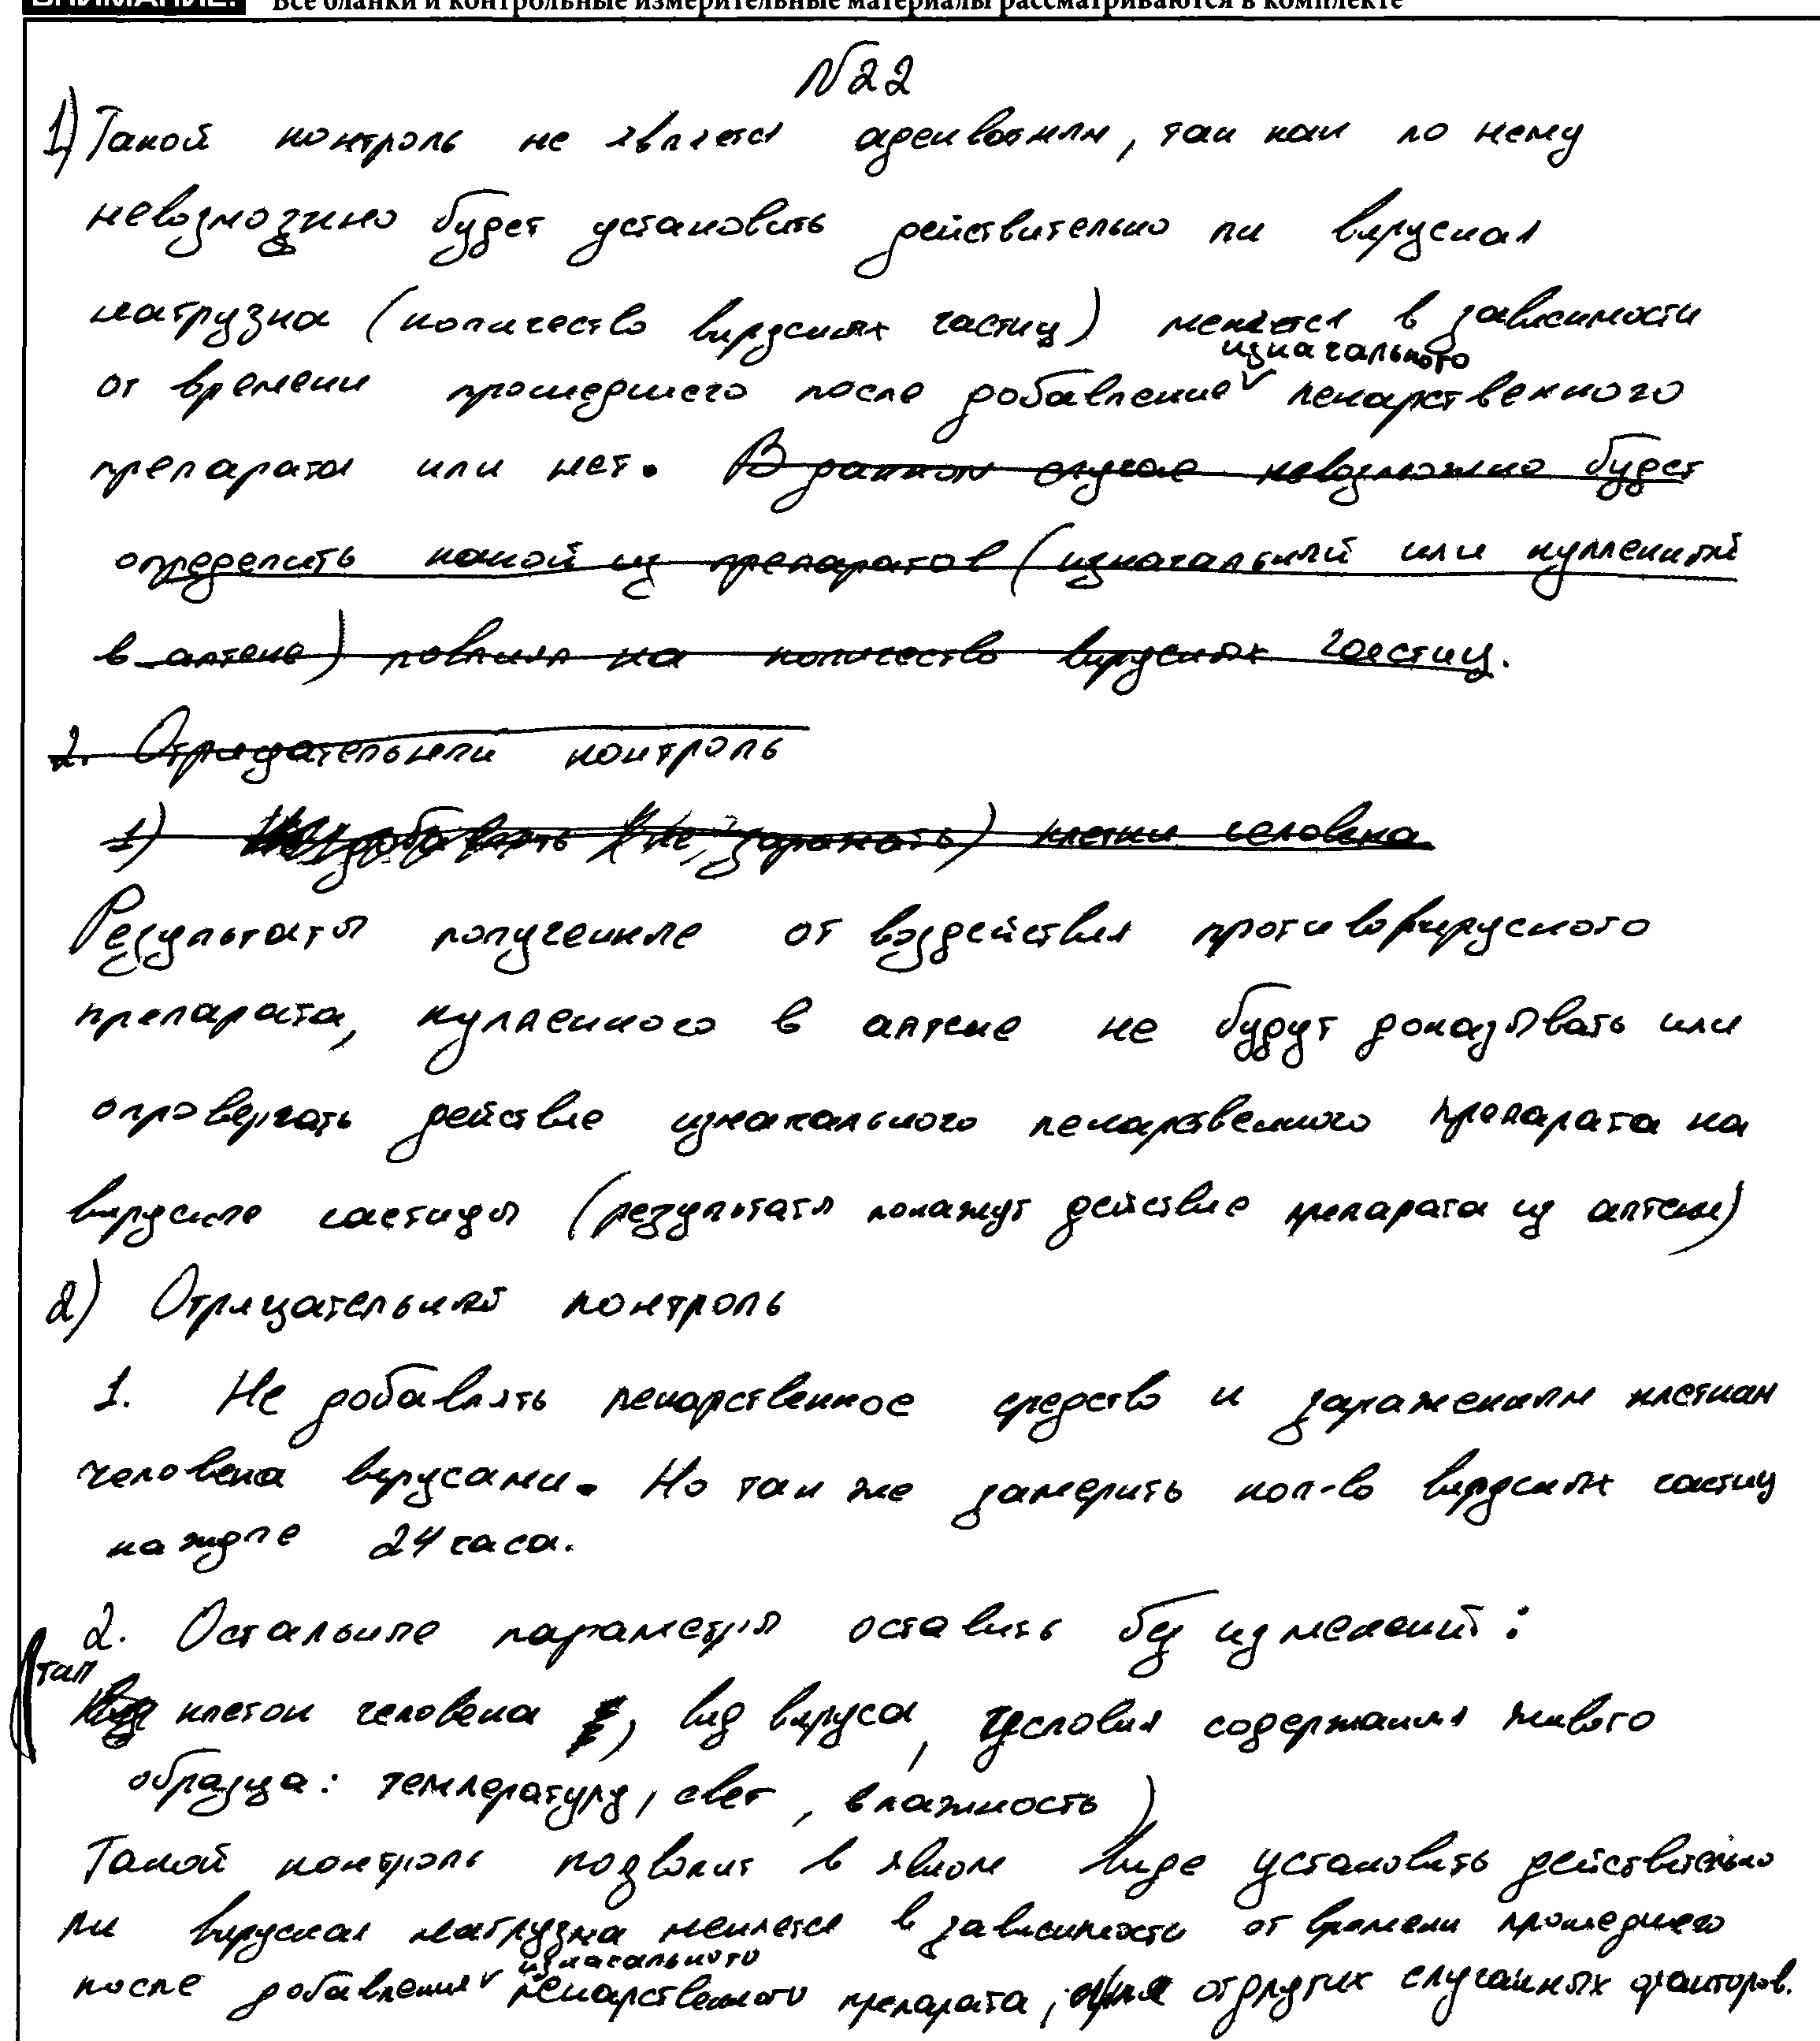 ВНИМАНИЕ! Все бланки и контрольные измерительные материалы рассматриваются в комплекте
№22
1) Такой контроль не является адекватным, так как по нему
невозможно будет установить действительно ли вирусная
нагрузка (количество вирусных частиц) меняется в зависимости
изначального
от времени прошедшего после добавление лекарственного
препарата или нет. В данном случае невозможно будет
определить какой из препаратов (изначальный или купленный
в аптеке) повлиял на количество вирусных частиц.
2. Отрицательный контроль
1) добавлять (не заражать) клетки человека
Результаты полученные от воздействия противовирусного
препарата, купленного в аптеке не будут доказывать или
опровергать действие изначального лекарственного препарата на
вирусные частицы (результаты покажут действие препарата из аптеки)
2) Отрицательный контроль
1. Не добавлять лекарственное средство к зараженным клеткам
человека вирусами. Но так же замерить кол-во вирусных частиц
каждые 24 часа.
2. Остальные параметры оставить без изменений:
(тип клеток человека, вид вируса, условия содержания живого
образца: температуру, свет, влажность)
Такой контроль позволит в явном виде установить действительно
ли вирусная нагрузка меняется в зависимости от времени прошедшего
изначального
после добавления лекарственного препарата, от других случайных факторов.